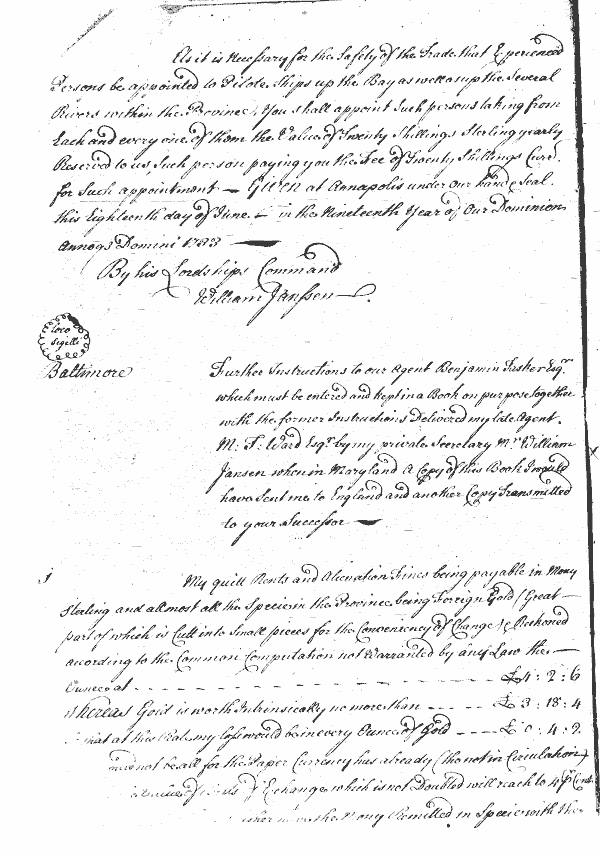 As it is Necessary for the Safety of the Trade that Experienced
Persons be appointed to Pilote Ships up the Bay as well as up the Several
Rivers within the Province, You shall appoint Such persons taking from
Each and every one of them the Value of Twenty Shillings Sterling yearly
Reserved to us, Such person paying you the Fee of Twenty Shillings Curr.
for Such appointment — Given at Annapolis under our hand & Seal.
this Eighteenth day of June — in the Nineteenth Year of Our Dominion
Annoqs Domini 1733 —
By his Lordships Command
William Janssen
loco
sigilli
Baltimore
Further Instructions to our Agent Benjamin Tasker Esqr
which must be entered and kept in a Book on purpose together
with the former Instructions Delivered my late Agent.
M. T. Ward Esqr. by my private Secretary Mr. William
Jansen when in Maryland A Copy of this Book I would
have sent me to England and another Copy Transmitted
to your Successor —
1
My quitt Rents and Alienation Fines being payable in Mony
Sterling and allmost all the Specie in the Province being Foreign Gold (Great
part of which is Cutt into Small pieces for the Conveniency of Change) & Reckoned
according to the Common Computation not Warranted by any Law the
Ounce at £4 : 2 : 6
Whereas Gold is worth Intrinsically no more than £3 : 18 : 4
that at this Rate my Loss would be in every Ounce of Gold £0 : 4 : 2
not be all for the Paper Currency has already (tho not in Circulation)
of Exchange which is not Doubted will reach to 4 P Cent
the Mony Remitted in Specie with the